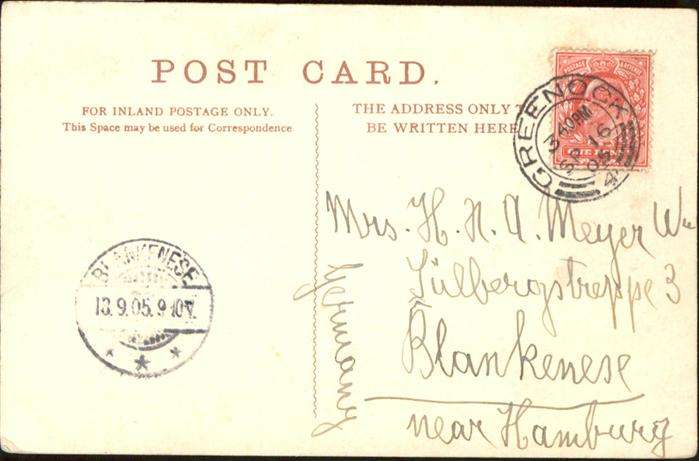 POST CARD.
FOR INLAND POSTAGE ONLY.
This Space may be used for Correspondence
THE ADDRESS ONLY T
BE WRITTEN HERE
GREENOCK
3 40PM
SP 16
05
4
Mrs. H. H. A. Meyer Wu
Sülbergstreppe 3
Blankenese
near Hamburg
Germany
BLANKENESE
9.05.9-10V.